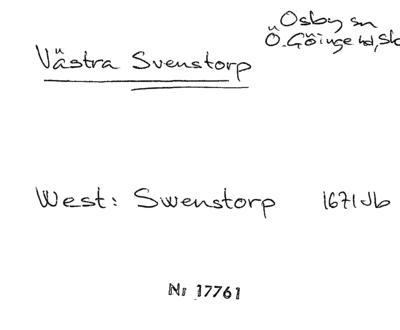 Osby sn
Ö. Göinge hd, Sk
Västra Svenstorp
West: Swenstorp 1671 Jb
Nr 17761